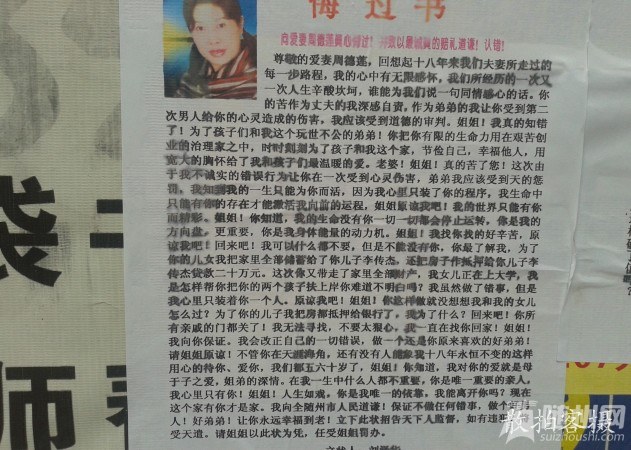 悔过书
向爱妻周德莲真心悔过！并致以最诚真的赔礼道谦！认错！
尊敬的爱妻周德莲，回想起十八年来我们夫妻所走过的
每一步路程，我的心中有无限感怀，我们所经历的一次又
一次人生辛酸坎坷，谁能为我们说一句同情感心的话。你
的苦作为丈夫的我深感自责，作为弟弟的我让你受到第二
次男人给你的心灵造成的伤害，我应该受到道德的审判。姐姐！我真的知错
了！为了孩子们和我这个玩世不公的弟弟！你把你有限的生命力用在艰苦创
业的治理家之中，时时刻刻为了孩子和我这个家，节俭自己，幸福他人，用
宽大的胸怀给了我和孩子们最温暖的爱。老婆！姐姐！真的苦了您！这次由
于我不诚实的错误行为让你在一次受到心灵伤害，弟弟我应该受到天的惩
罚。我知到我的一生只能为你而活，因为我心里只装了你的程序，我生命中
只能有你的存在才能激活我向前的运程，姐姐原谅我吧！我的世界只能有你
而精彩。姐姐！你知道，我的生命没有你一切一切都会停止运转，你是我的
方向盘，更重要，你是我身体能量的动力机。姐姐！我找你找的好辛苦，原
谅我吧！回来吧！我可以什么都不要，但是不能没有你，你最了解我，为了
你的儿女我把家里全部储蓄给了你儿子李传杰，还把房子作抵押给你儿子李
传杰贷款二十万元。这次你又带走了家里全部财产，我女儿正在上大学，我
是怎样帮你把你的两个孩子扶上岸你难道不明白吗？我虽然做了错事，但是
我心里只装着你一个人。原谅我吧！姐姐！你这样做就没想想我和我的女儿
怎么过？为了你的儿子我把房都抵押给银行了，我为了什么？回来吧！你所
有亲戚的门都关了！我无法寻找，不要太狠心，我一直在找你回家！姐姐！
我向你保证。我会改正自己的一切错误，做一个还是你原来喜欢的好弟弟！
请姐姐原谅！不管你在天涯海角，还有没有人能象我十八年永恒不变的这样
用心的待你、爱你，我们都五六十岁了，姐姐！你知道，我对你的爱就是母
于子之爱，姐弟的深情。在我一生中什么人都不重要，你是唯一重要的亲人，
我心里只有你！姐姐！人生如戏，你是我唯一的依靠，我能离开你吗？现在
这个家有你才是家。我向全随州市人民道谦！保证不做任何错事，做个
人！好弟弟！让你永远幸福到老！立下此状招告天下人监督，如有违
受天遣。请姐姐以此状为凭，任受姐姐罚办。
立状人
袋
师
散拍客摄
随州网
suizhoushi.com